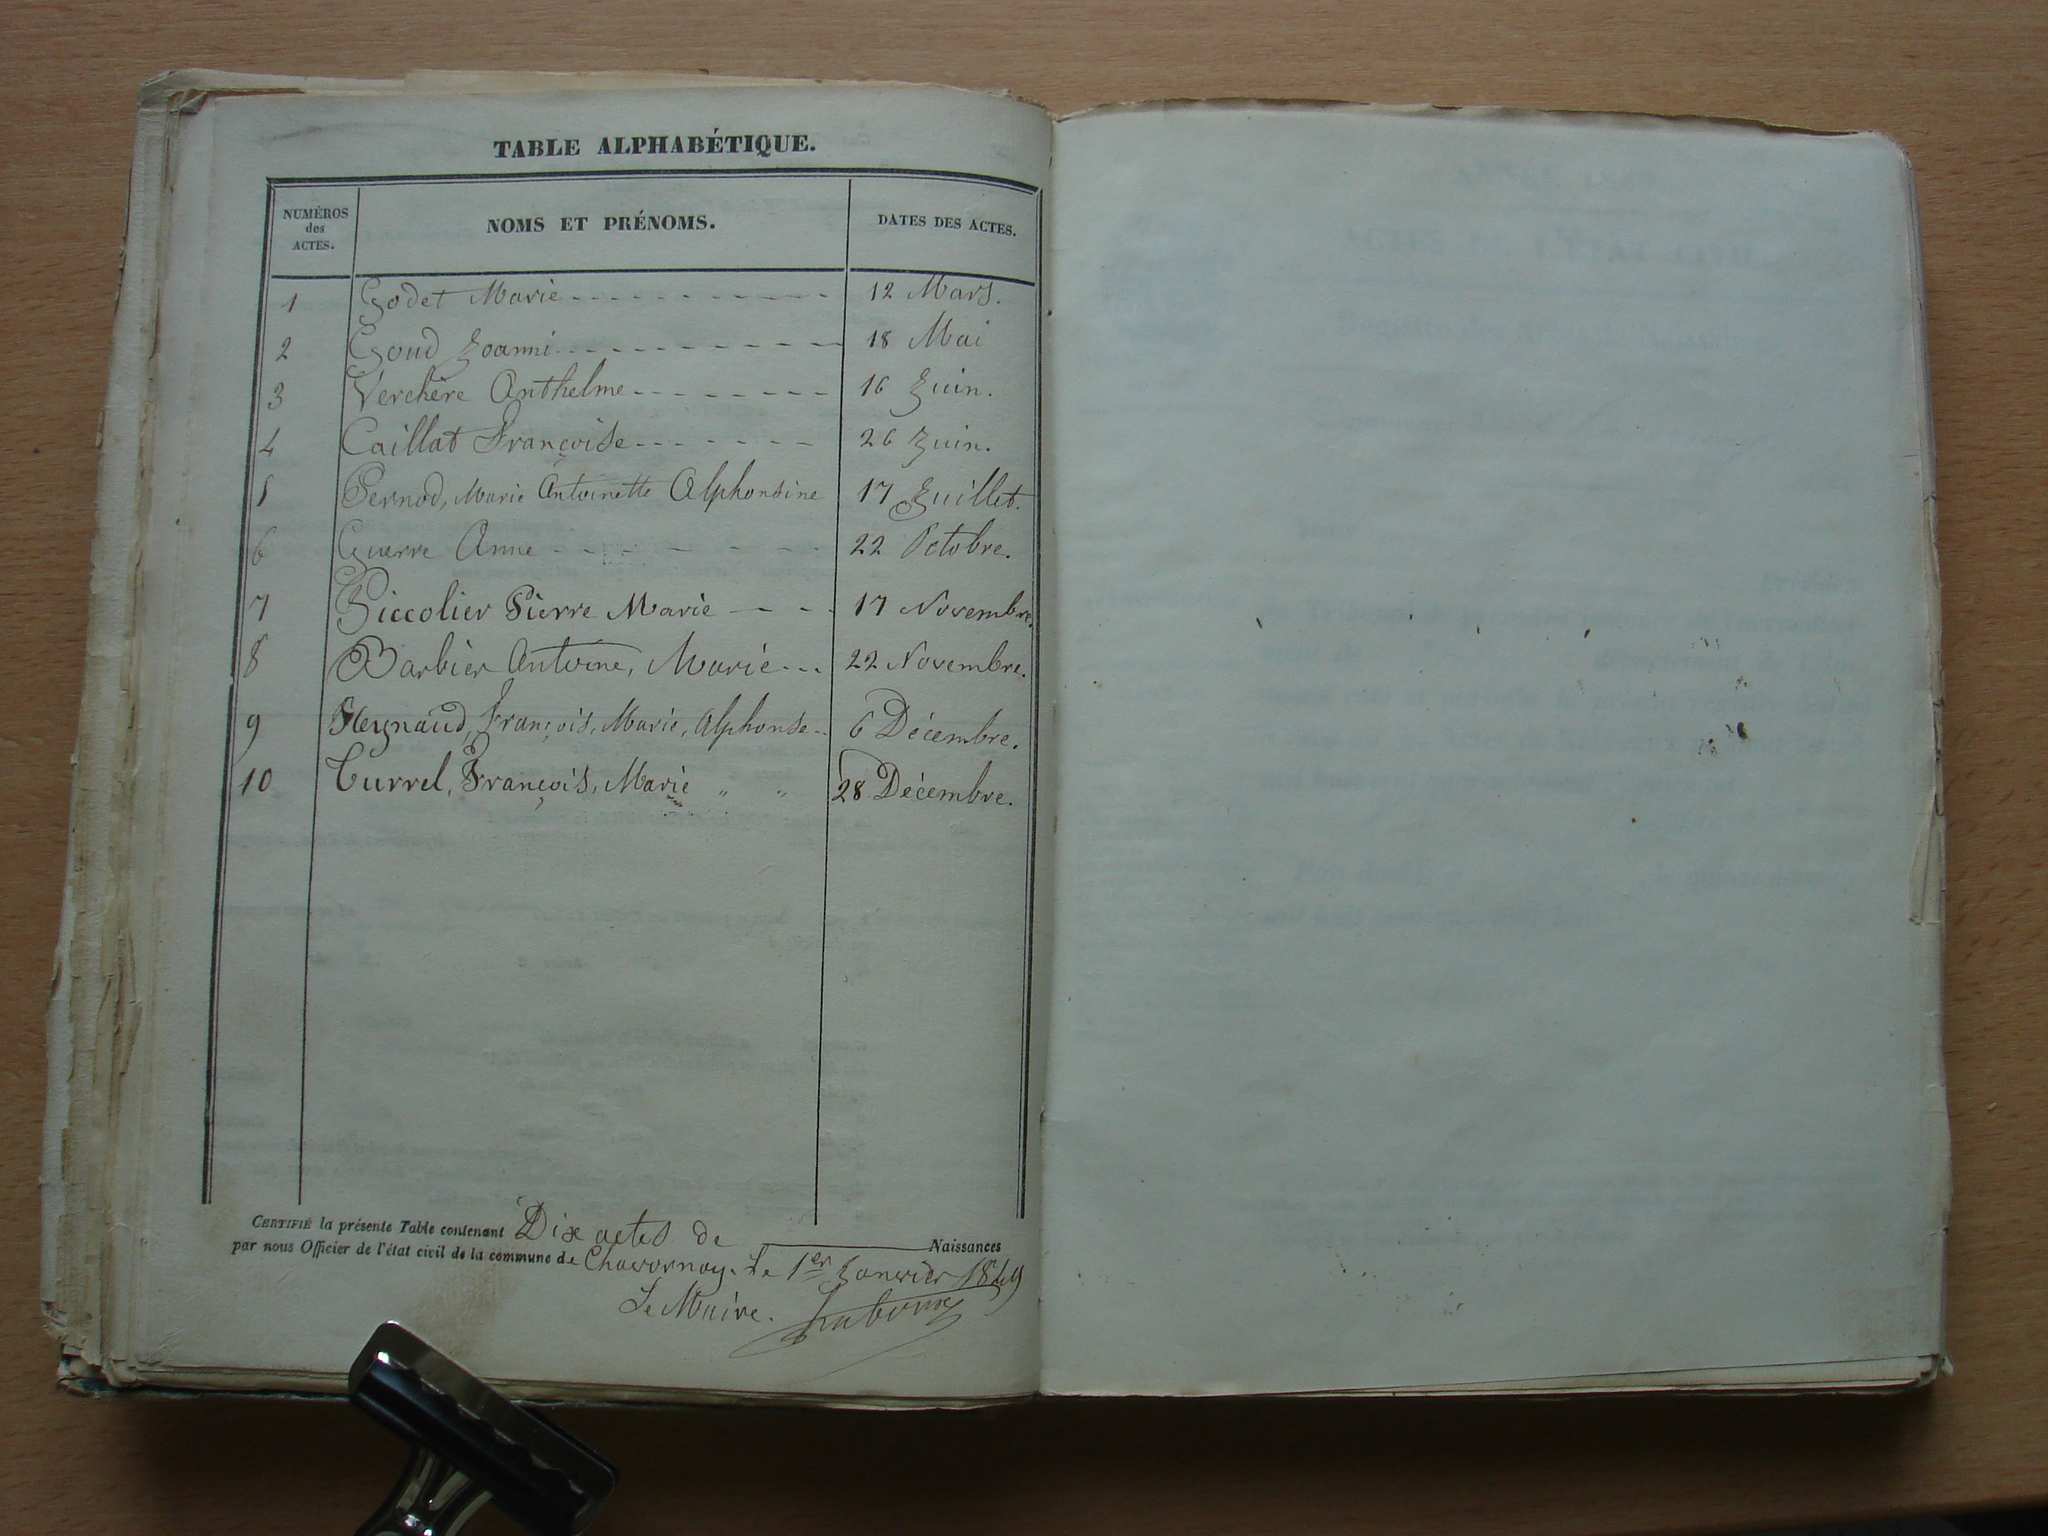 TABLE ALPHABÉTIQUE.
NUMÉROS des ACTES. NOMS ET PRÉNOMS. DATES DES ACTES.
1 Godet Marie 12 Mars.
2 Goud Joanni 18 Mai
3 Verchère Anthelme 16 Juin.
4 Caillat Françoise 26 Juin.
5 Pernod, Marie Antoinette Alphonsine 17 Juillet.
6 Guerre Anne 22 Octobre.
7 Piccolier Pierre Marie 17 Novembre.
8 Barbier Antoine, Marie 22 Novembre.
9 Reynaud, François, Marie, Alphonse 6 Décembre.
10 Turrel, François, Marie " " 28 Décembre.
CERTIFIÉ la présente Table contenant Dix actes de Naissances
par nous Officier de l'état civil de la commune de Chavornay. Le 1er Janvier 1849
Le Maire.